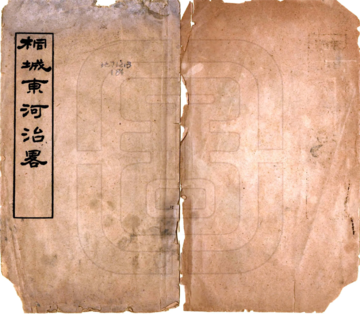 桐城東河治畧